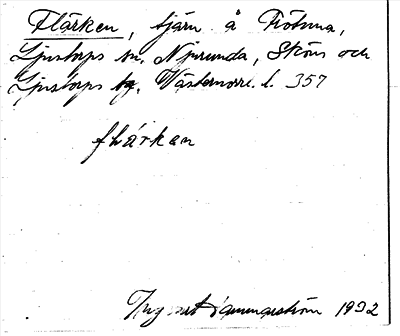 Flärken, tjärn å Frötuna,
Ljustorps sn. Njurunda, Sköns och
Ljustorps tg. Västernorrl. l. 357
flärken
Ingvar Hammarström 1932